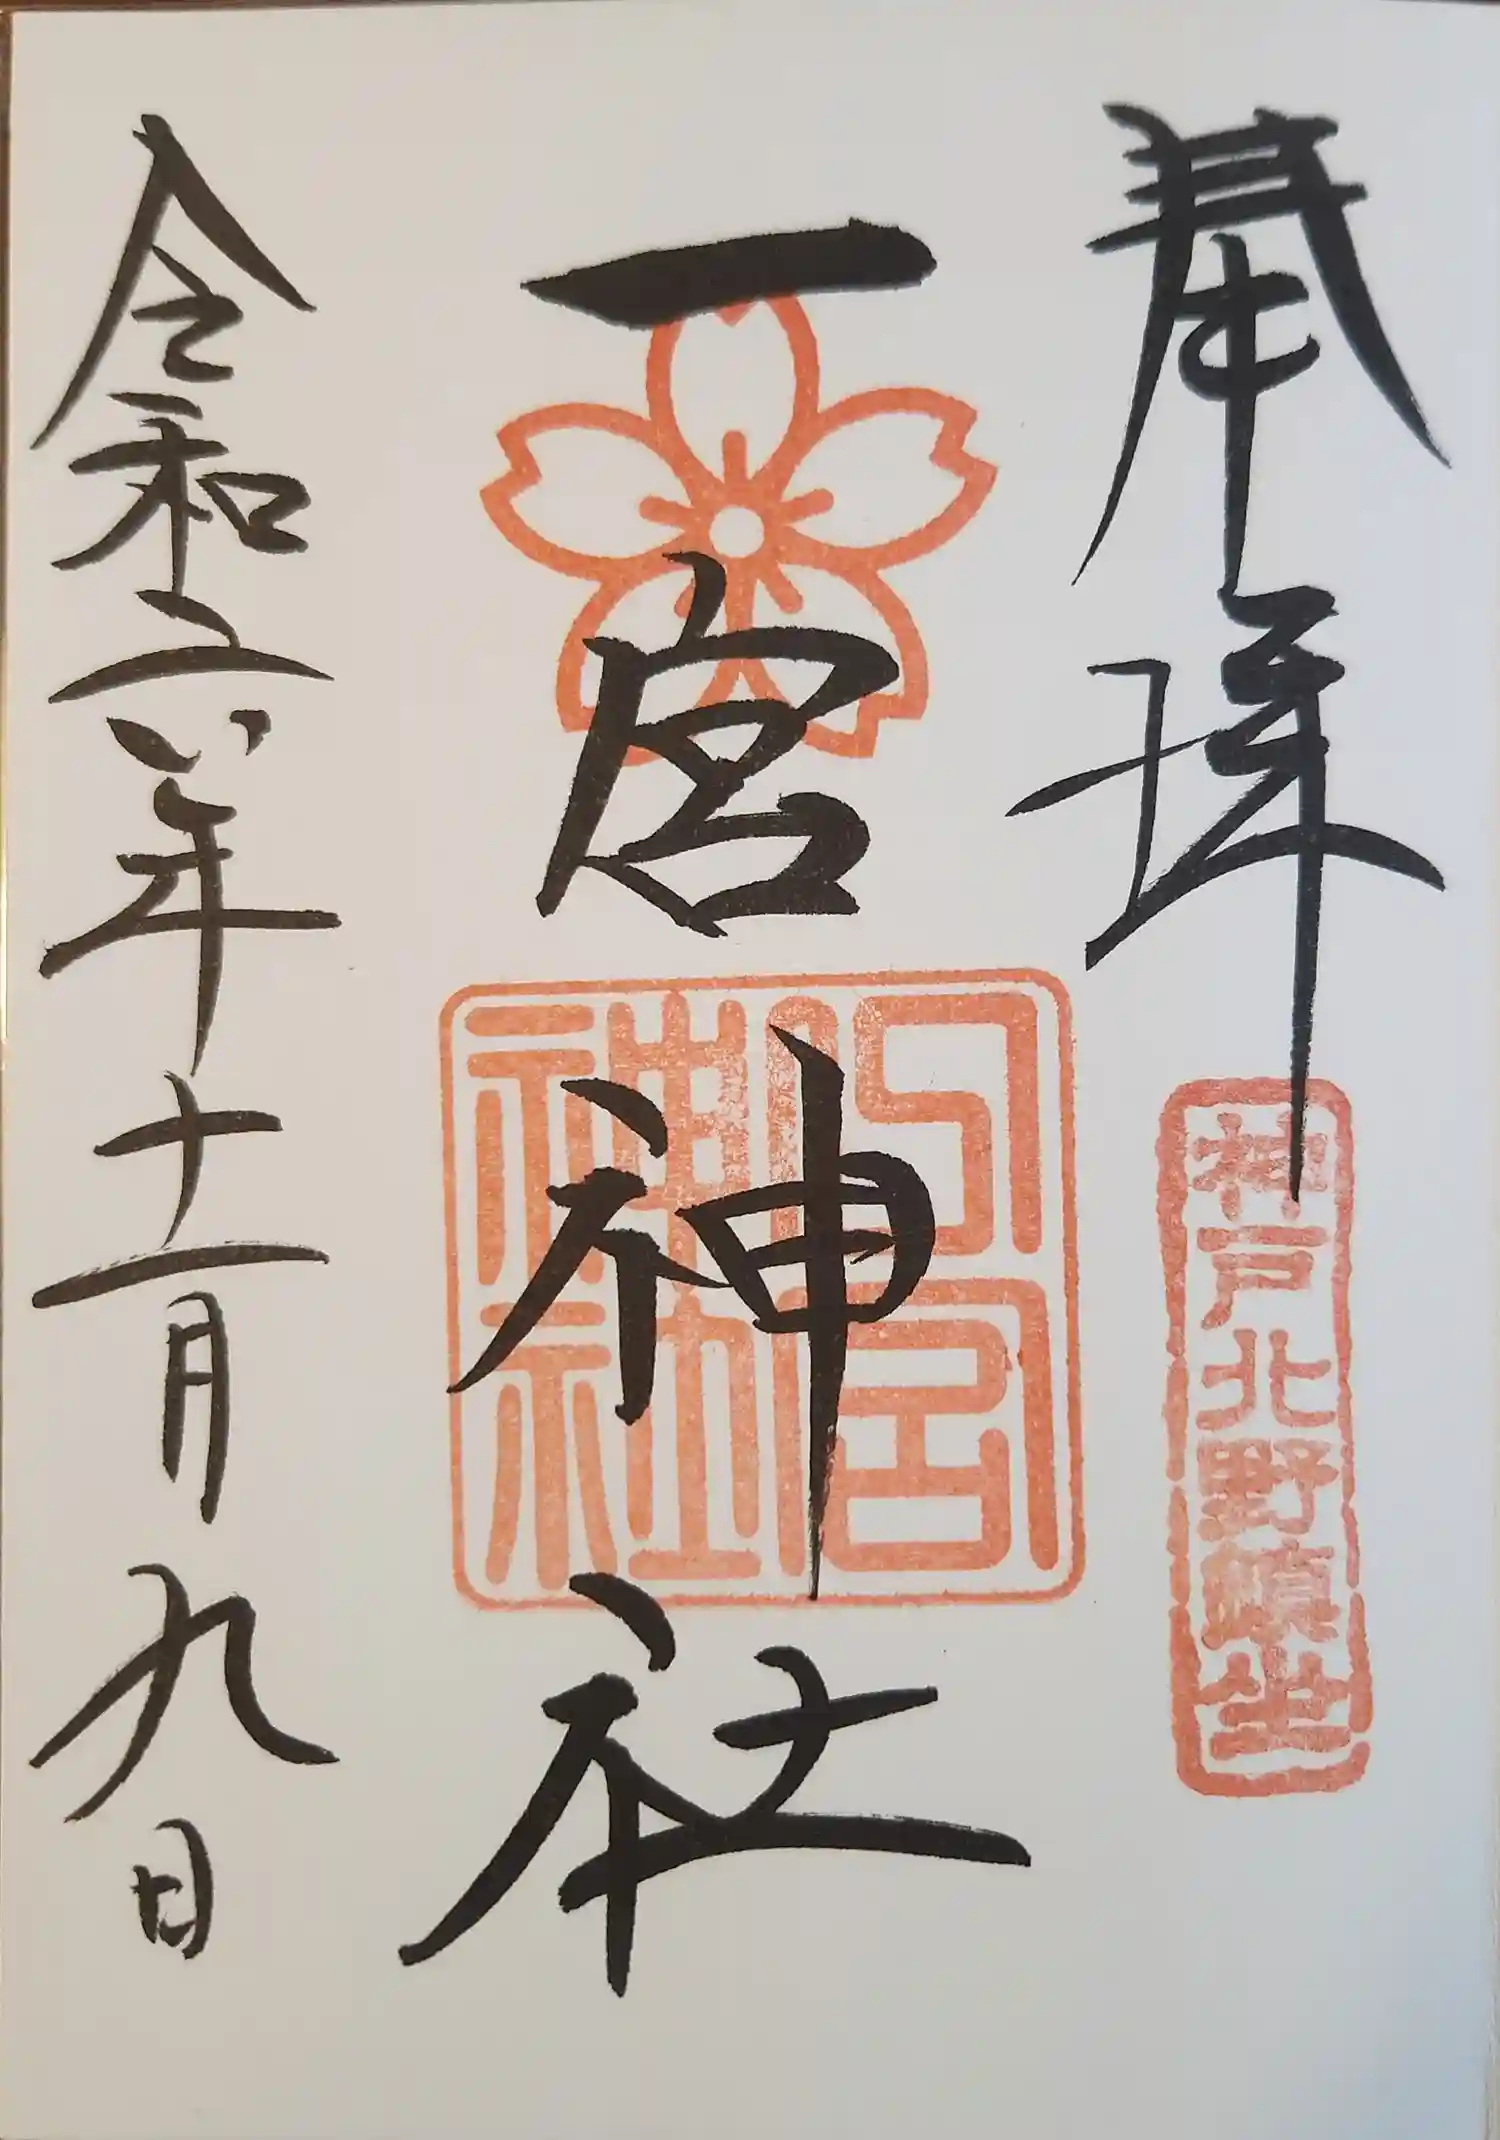 奉拝
神戸北野鎮坐
一宮神社
一宮神社
令和六年十一月九日